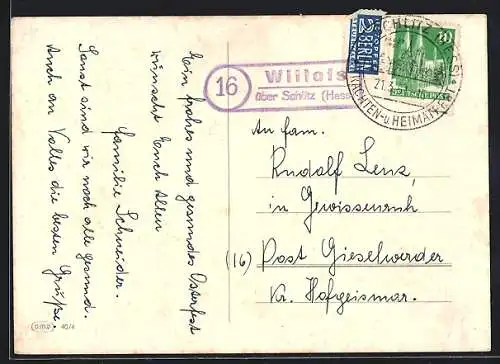 Ein frohes und gesundes Osterfest
wünscht Euch Allen
Familie Schneider.
Sonst sind wir noch alle gesund.
Auch an Valles die besten Grüße
16
über Schlitz (Hess
NOTOPFER
2 BERLIN
STEUERMARKE
SCHLITZ
21.3.
TRACHTEN-U. HEIMATFEST
DEUTSCHE POST
An Fam.
Rudolf Lenz,
in Gewissenruh
(16) Post Gieselwerder
Kr. Hofgeismar.
40/4